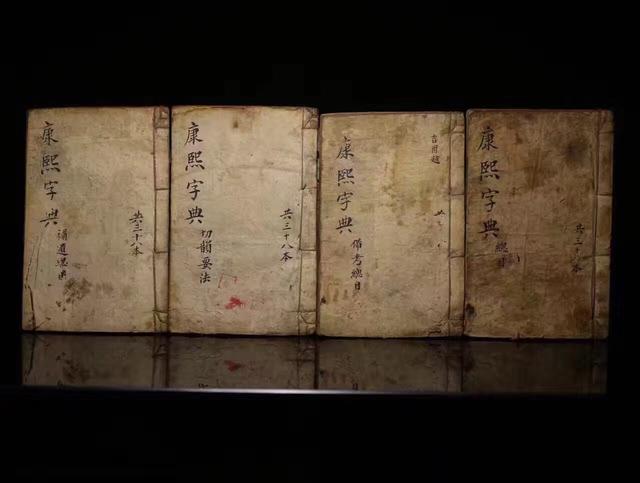 康熙字典
共三十八本
康熙字典
切韻要法
共三十八本
康熙字典
備考總目
康熙字典
總目
共三十本